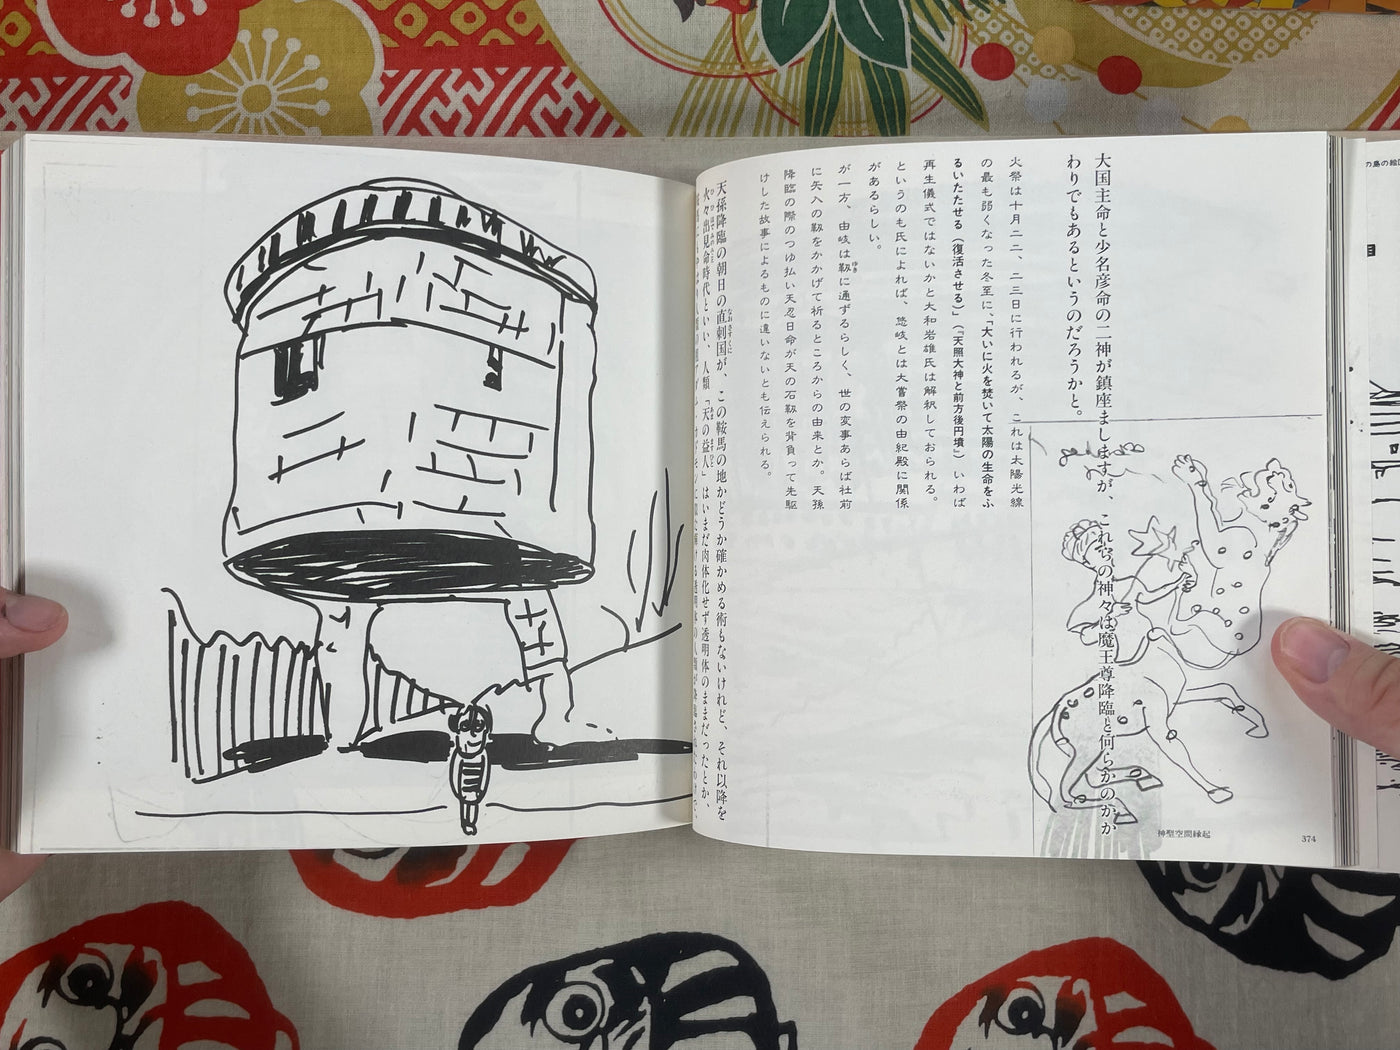 大国主命と少名彦命の二神が鎮座ましますが、これらの神々は魔王尊降臨と何らかのかか
わりでもあるというのだろうかと。
火祭は十月二二、二三日に行われるが、これは太陽光線
の最も弱くなった冬至に、「大いに火を焚いて太陽の生命をふ
るいたたせる（復活させる）」（『天照大神と前方後円墳』）いわば
再生儀式ではないかと大和岩雄氏は解釈しておられる。
というのも氏によれば、悠岐とは大嘗祭の由紀殿に関係
があるらしい。
が一方、由岐は靱に通ずるらしく、世の変事あらば社前
に矢入の靱をかかげて祈るところからの由来とか。天孫
降臨の際のつゆ払い天忍日命が天の石靱を背負って先駆
けした故事によるものに違いないとも伝えられる。
天孫降臨の朝日の直刺国が、この鞍馬の地かどうか確かめる術もないけれど、それ以降を
火々出見命時代といい、人類「天の益人」はいまだ肉体化せず透明体のままだったとか、
神聖空間縁起
374